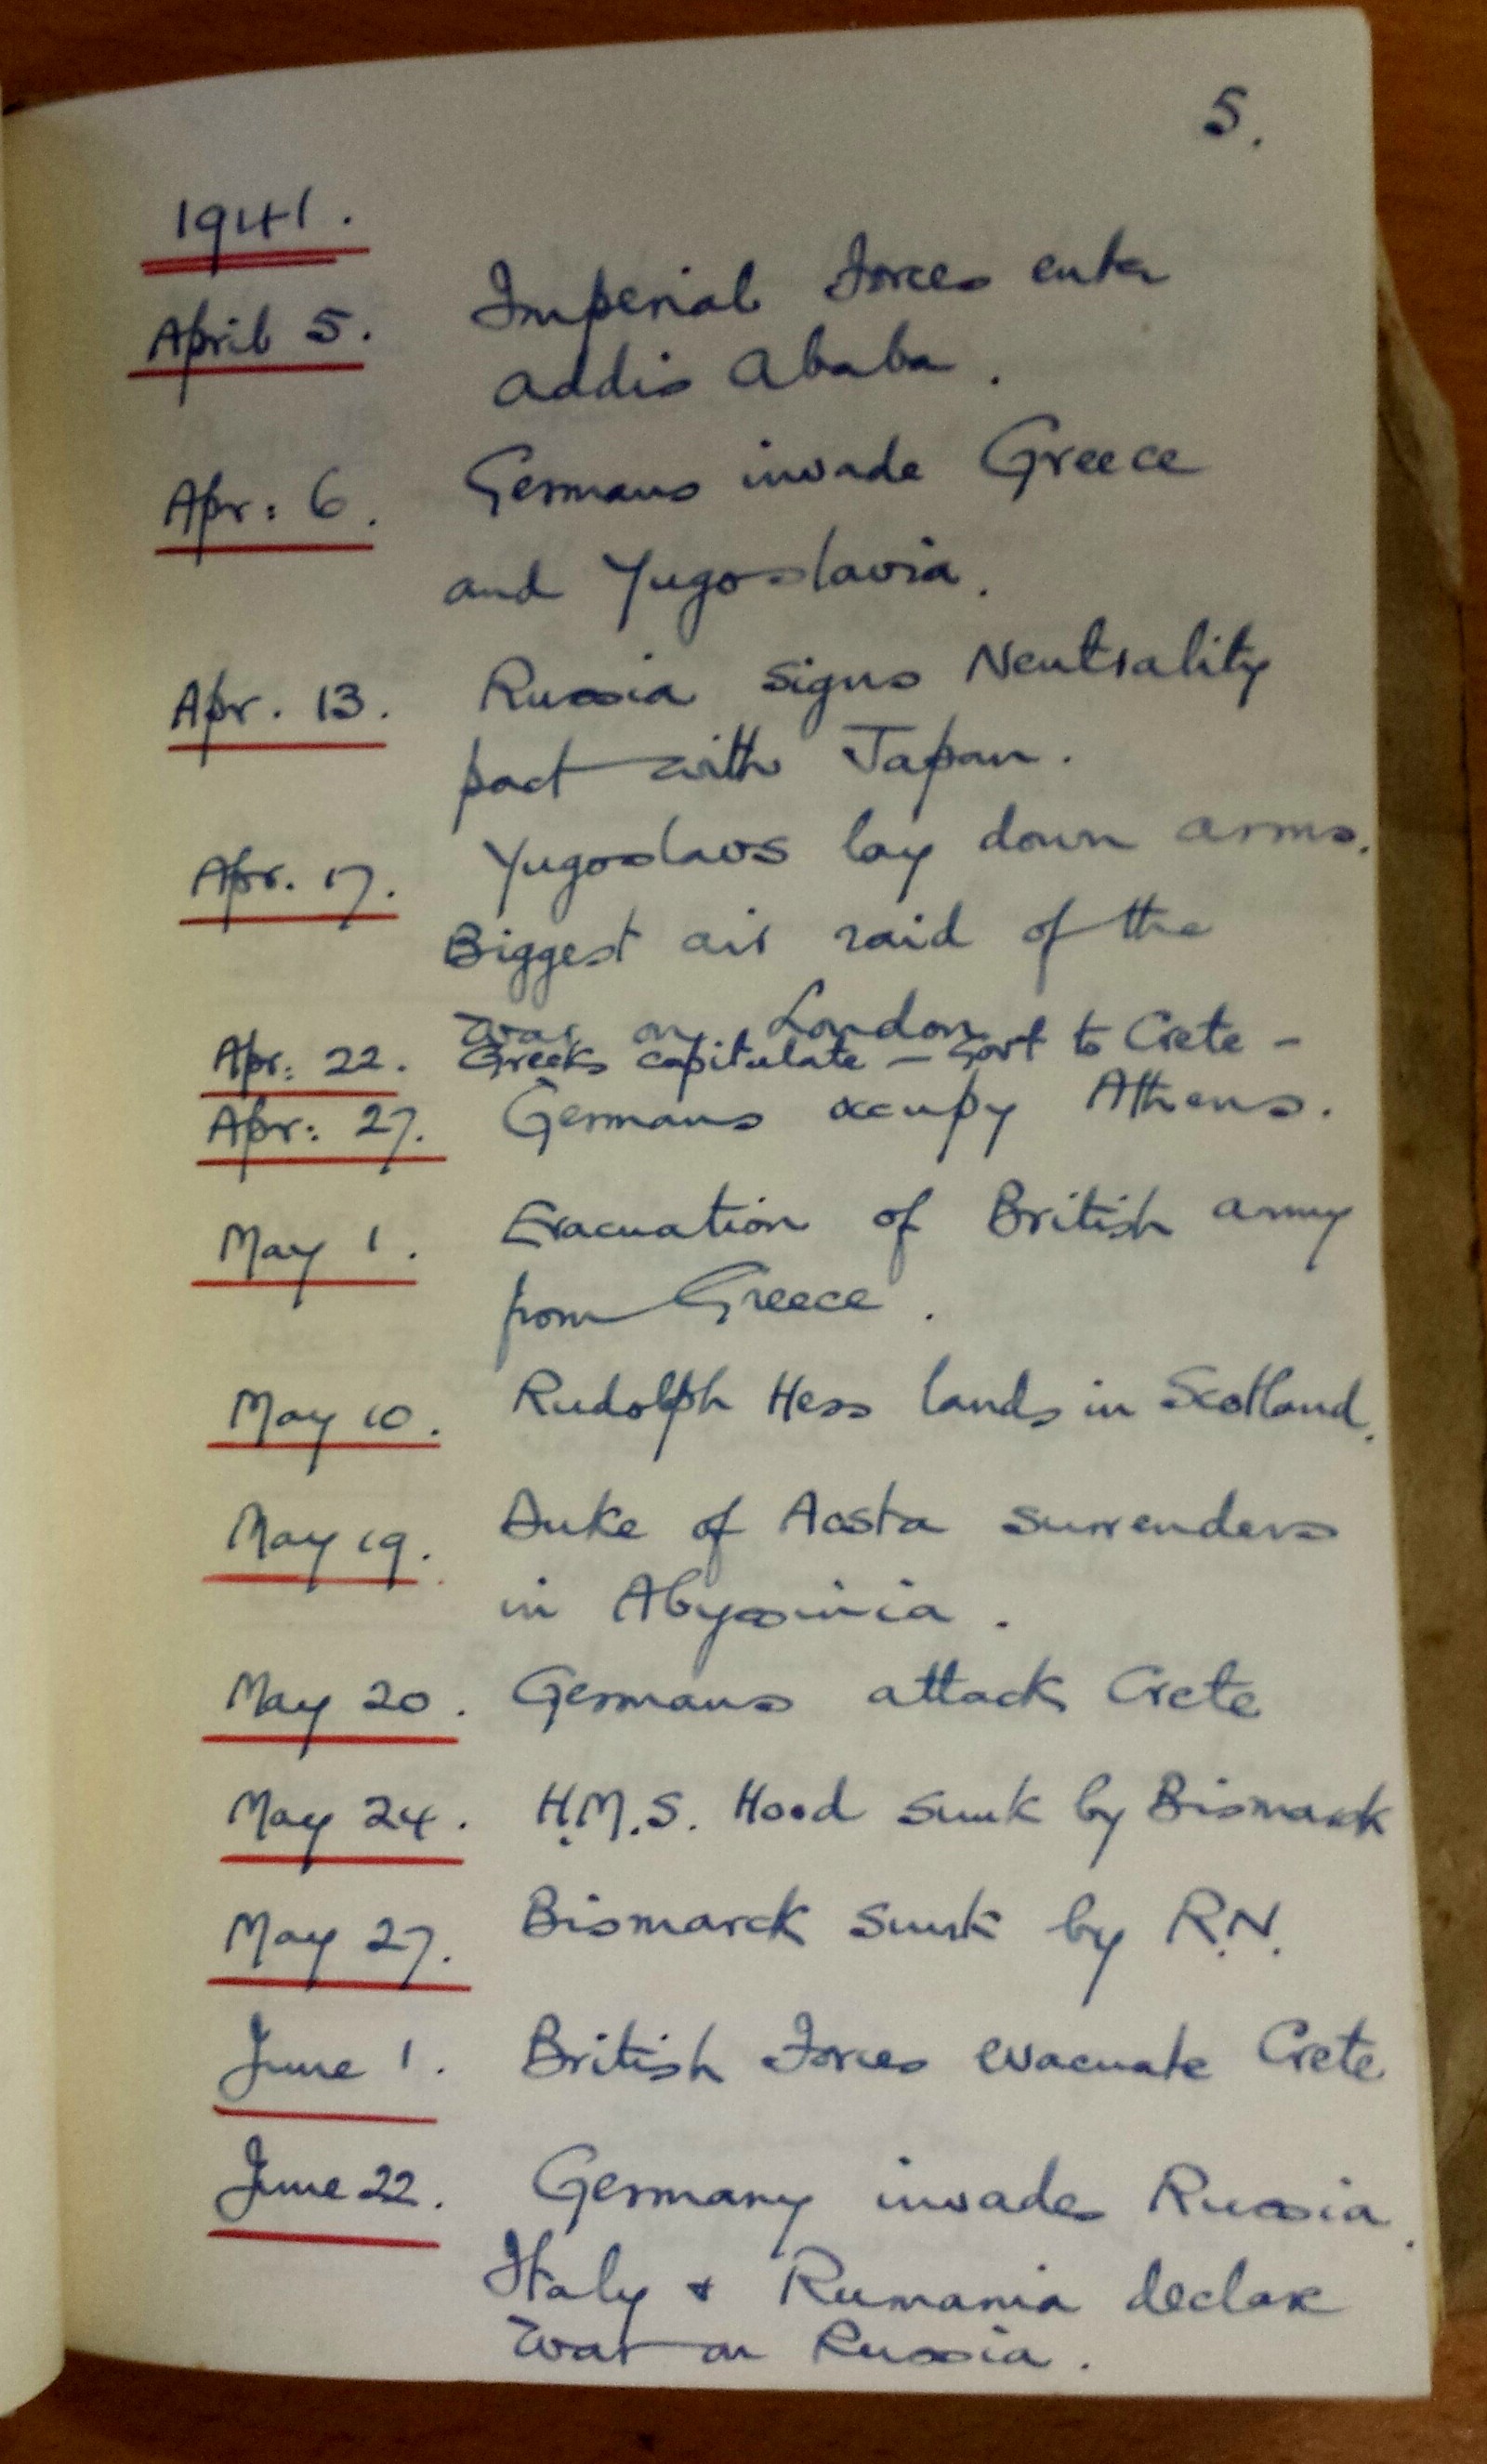 5.
1941.
April 5. Imperial Forces enter
Addis Ababa.
Apr: 6. Germans invade Greece
and Yugoslavia.
Apr. 13. Russia signs Neutrality
pact with Japan.
Apr. 17. Yugoslavs lay down arms.
Biggest air raid of the
war on London
Apr: 22. Greeks capitulate – Govt to Crete –
Apr: 27. Germans occupy Athens.
May 1. Evacuation of British army
from Greece.
May 10. Rudolph Hess lands in Scotland.
May 19. Duke of Aosta surrenders
in Abyssinia.
May 20. Germans attack Crete
May 24. H.M.S. Hood sunk by Bismark
May 27. Bismarck sunk by R.N.
June 1. British Forces evacuate Crete
June 22. Germany invades Russia.
Italy & Rumania declare
War on Russia.